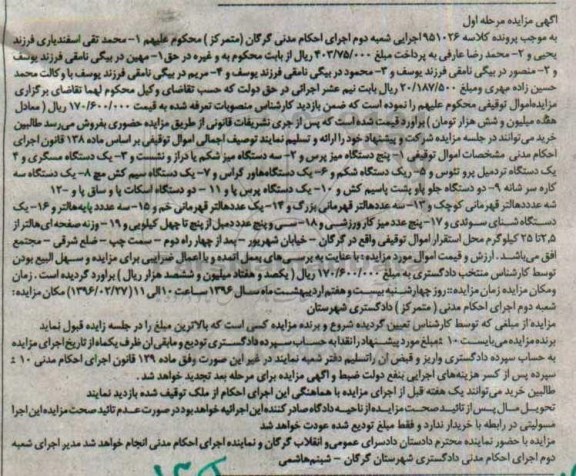 آگهی مزایده مرحله اول
به موجب پرونده کلاسه ۹۵۱۰۲۶ اجرایی شعبه دوم اجرای احکام مدنی گرگان (متمرکز) محکوم علیهم ۱- محمد تقی اسفندیاری فرزند
یحیی و ۲- محمد رضا عارفی به پرداخت مبلغ ۴۰۳/۷۵۰/۰۰۰ ریال از بابت محکوم به و غیره در حق ۱- مهین در بیگی نامقی فرزند یوسف
و ۲- منصور در بیگی نامقی فرزند یوسف و ۳- محمود در بیگی نامقی فرزند یوسف و ۴- مریم در بیگی نامقی فرزند یوسف با وکالت محمد
حسین زاده مهری ومبلغ ۲۰/۱۸۷/۵۰۰ ریال بابت نیم عشر اجرائی در حق دولت که حسب تقاضای وکیل محکوم لهما تقاضای برگزاری
مزایده اموال توقیفی محکوم علیهم را نموده است که ضمن بازدید کارشناس منصوبات تعرفه شده به قیمت ۱۷۰/۶۰۰/۰۰۰ ریال (معادل
هفده میلیون و شش هزار تومان) برآورد قیمت شده است که پس از جری تشریفات قانونی از طریق مزایده حضوری بفروش می‌رسد طالبین
خرید می‌توانند در جلسه مزایده شرکت و پیشنهاد خود را ارائه و تسلیم نمایند توصیف اجمالی اموال توقیفی بر اساس ماده ۱۳۸ قانون اجرای
احکام مدنی مشخصات اموال توقیفی ۱- پنج دستگاه میز پرس و ۲- سه دستگاه میز شکم یا دراز و نشست و ۳- یک دستگاه مسگری و ۴
یک دستگاه تردمیل پرو تئوس و ۵- ریک دستگاه شکم و ۶- یک دستگاه هاور کراس و ۷- یک دستگاه سیم کش مچ ۸- یک دستگاه سه
کاره سر شانه ۹- دو دستگاه جلو پاو پشت پاسیم کش و ۱۰- یک دستگاه پرس پا و ۱۱ - دو دستگاه اسکات پا و ساق پا و ۱۲-
شه عدد هالتر قهرمانی کوچک و ۱۳- سه عدد هالتر قهرمانی بزرگ و ۱۴- یک عدد هالتر قهرمانی خم و ۱۵- سه عدد پایه هالتر و ۱۶- یک
دستگاه شنای سوئدی و ۱۷- پنج عدد میز کار ورزشی و ۱۸- سی و پنج عدد دمبل از پنج تا چهل کیلویی و ۱۹- وزنه صفحه ای هالتر از
۲،۵ تا ۲۵ کیلوگرم محل استقرار اموال توقیفی واقع در گرگان - خیابان شهریور - بعد از چهار راه دوم - سمت چپ - ضلع شرقی - مجتمع
افق می‌باشد. ارزش و قیمت اموال مورد مزایده: با عنایت به بررسی‌های بعمل آمده و با اعمال ضرایبی برای مزایده و سهل البیع بودن
توسط کارشناس منتخب دادگستری به مبلغ ۱۷۰/۶۰۰/۰۰۰ ریال (یکصد و هفتاد میلیون و ششصد هزار ریال) برآورد گردیده است. زمان
ومکان مزایده زمان مزایده: روز چهارشنبه بیست و هفتم اردیبهشت ماه سال ۱۳۹۶ ساعت ۱۰ الی ۱۱ (۱۳۹۶/۰۲/۲۷) مکان مزایده:
شعبه دوم اجرای احکام مدنی (متمرکز) دادگستری شهرستان
مزایده از مبلغی که توسط کارشناس تعیین گردیده شروع و برنده مزایده کسی است که بالاترین مبلغ را در جلسه زایده قبول نماید
برنده مزایده می‌بایست ۱۰ ٪ مبلغ مورد پیشنهاد را نقدا به حساب سپرده دادگستری تودیع و مابقی ان ظرف یکماه از تاریخ اجرای مزایده
به حساب سپرده دادگستری واریز و قبض ان راتسلیم دفتر شعبه نمایند در غیر این صورت وفق ماده ۱۲۹ قانون اجرای احکام مدنی ۱۰ ٪
سپرده پس از کسر هزینه‌های اجرایی بنفع دولت ضبط و آگهی مزایده برای مرحله بعد تجدید خواهد شد.
طالبین خرید می‌توانند یک هفته قبل از اجرای مزایده با هماهنگی این اجرای احکام از ملک توقیف شده بازدید نمایند
تحویل مال پس از تائید صحت مزایده از ناحیه دادگاه صادر کننده این اجرائیه خواهد بود در صورت عدم تائید صحت مزایده این اجرا
مسولیتی در رابطه با خریدار ندارد و فقط مبلغ تودیع شده عودت خواهد شد
مزایده با حضور نماینده محترم دادستان دادسرای عمومی و انقلاب گرگان و نماینده اجرای احکام مدنی انجام خواهد شد مدیر اجرای شعبه
دوم اجرای احکام مدنی دادگستری شهرستان گرگان - شبنم هاشمی